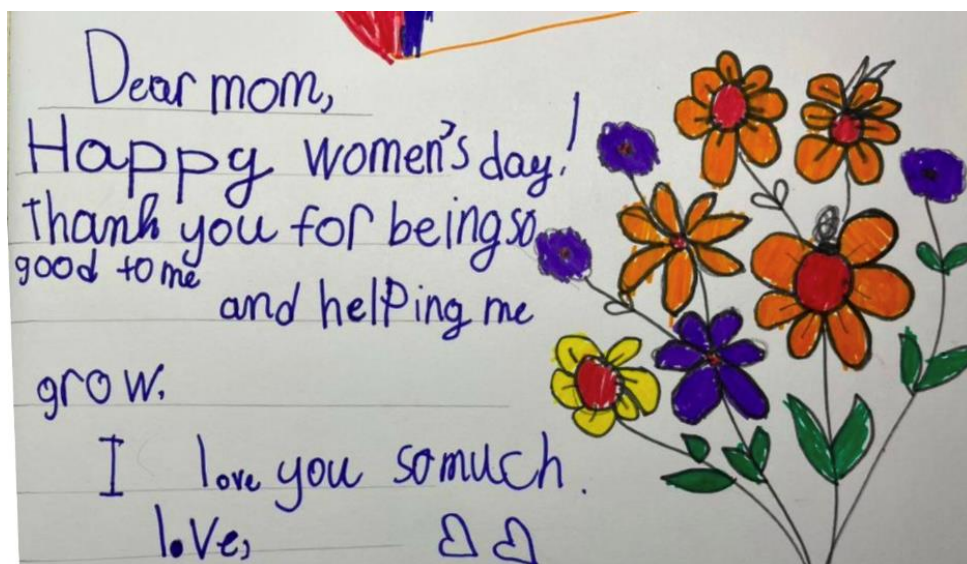 Dear mom,
Happy women's day!
Thank you for being so
good to me
and helping me
grow.
I love you so much.
love,